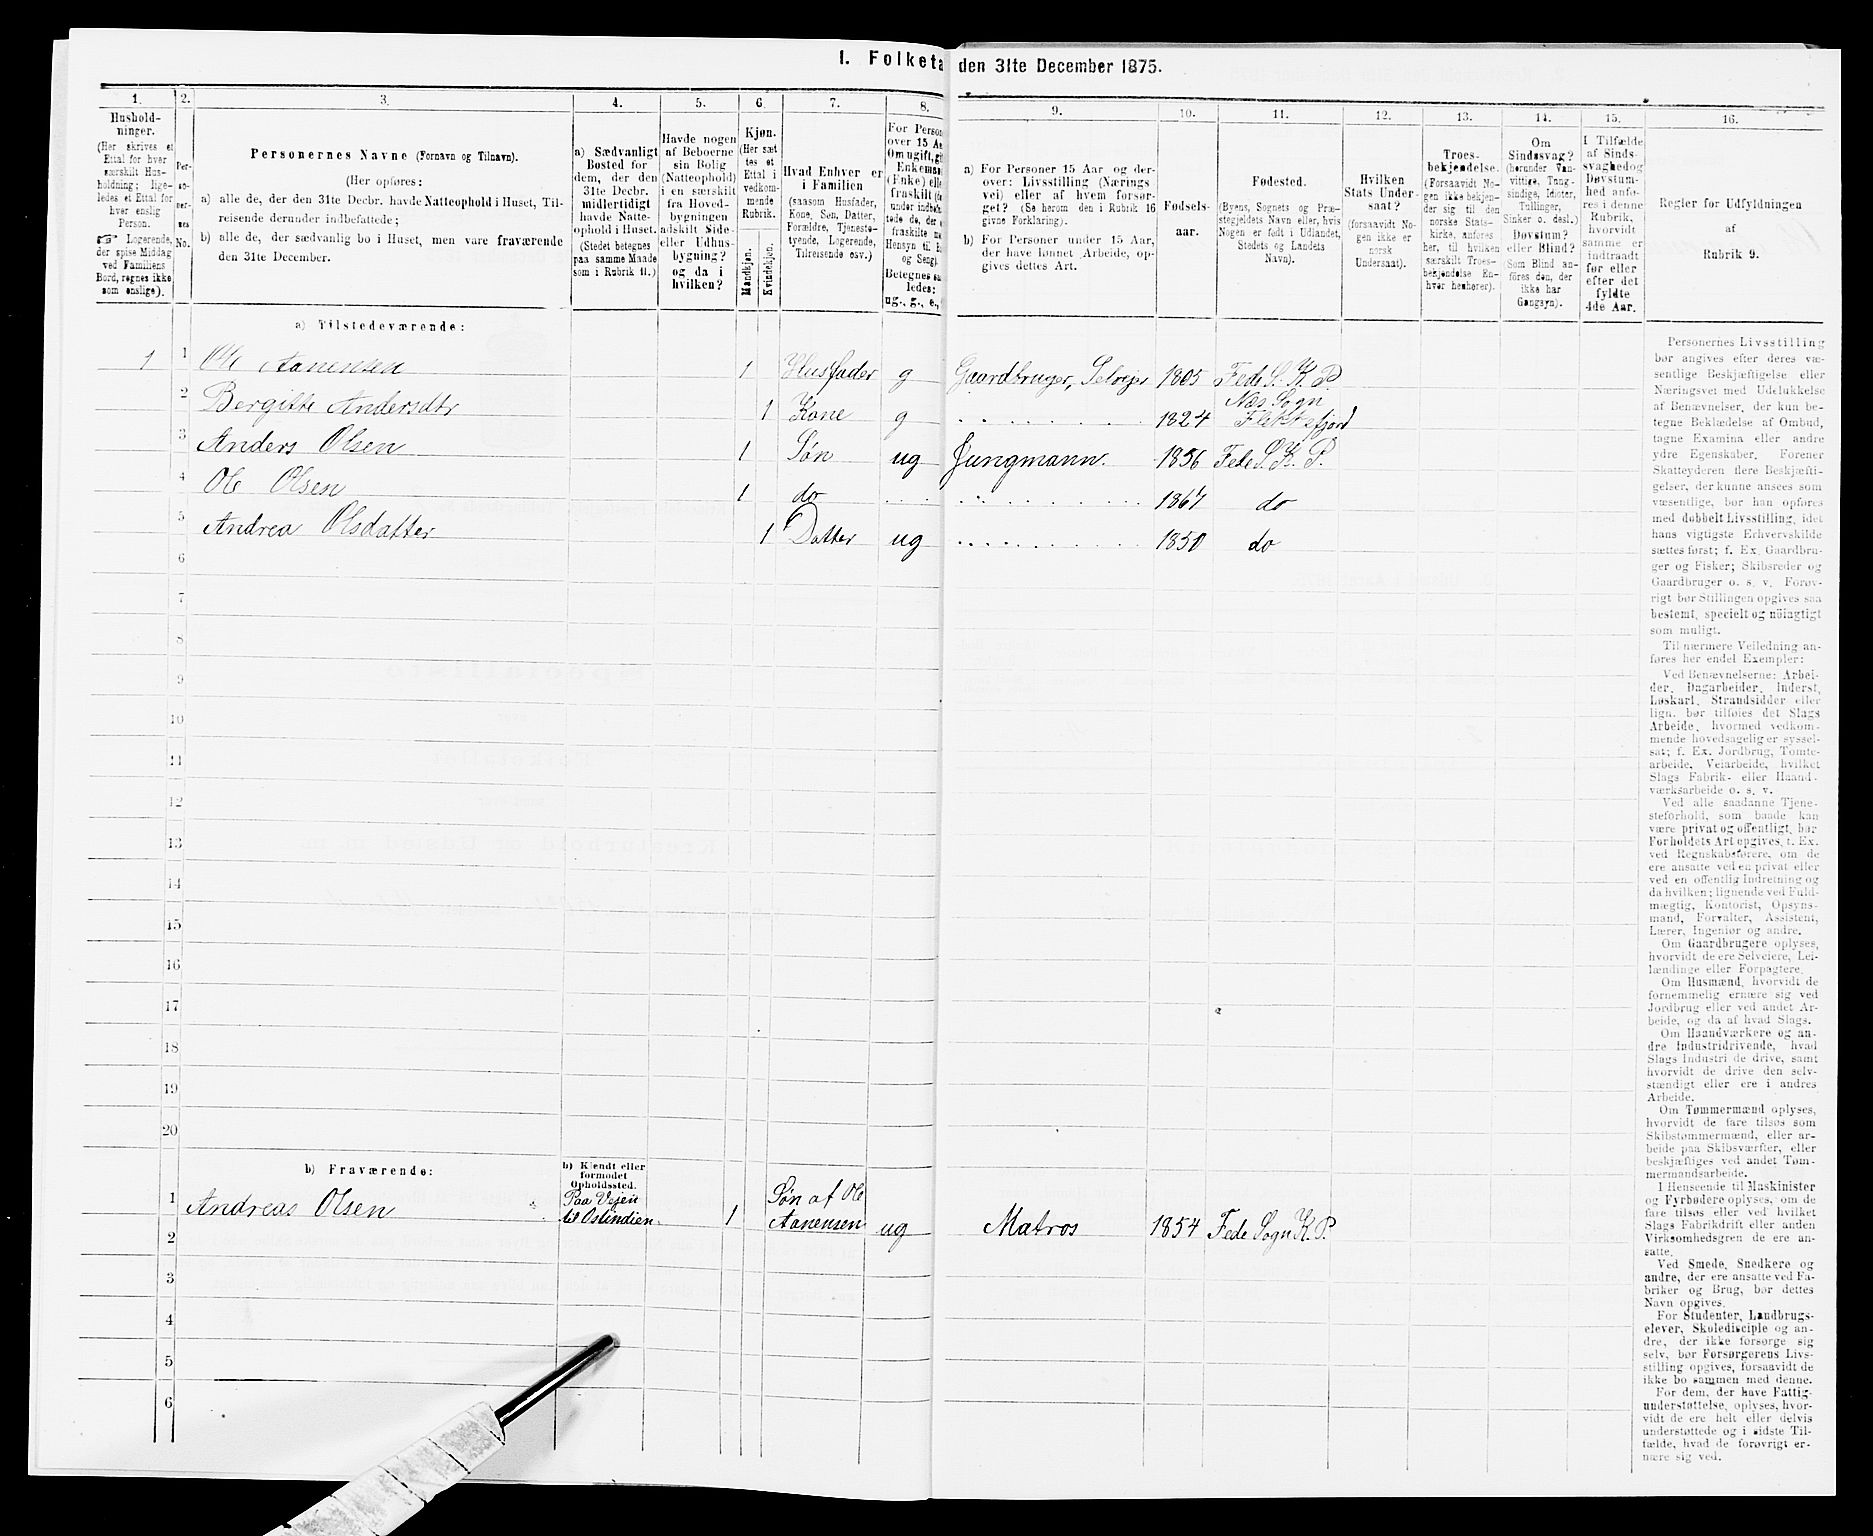 I. Folketa den 31te December 1875.
1. 2. 3. 4. 5. 6. 7. 8. 9. 10. 11. 12. 13. 14. 15. 16.
Hushold-
ninger.
(Her skrives et
Ettal for hver
særskilt Hus-
holdning; lige-
ledes et Ettal for
hver enslig
Person.
☞ Logerende,
der spise Middag
ved Familiens
Bord, regnes ikke
som enslige).
Per-
so-
ner-
nes
No.
Personernes Navne (Fornavn og Tilnavn).
(Her opføres:
a) alle de, der den 31te Decbr. havde Natteophold i Huset, Til-
reisende derunder indbefattede;
b) alle de, der sædvanlig bo i Huset, men vare fraværende
den 31te December.
a) Sædvanligt
Bosted for
dem, der den
31te Decbr.
midlertidigt
havde Natte-
ophold i Huset.
(Stedet betegnes
paa samme Maade
som i Rubrik 11.)
Havde nogen
af Beboerne
sin Bolig
(Natteophold)
i en særskilt
fra Hoved-
bygningen
adskilt Side-
eller Udhus-
bygning?
og da i
hvilken?
Kjøn.
(Her sæt
tes et
Ettal i
vedkom-
mende
Rubrik.
Mandkjøn.
Kvindekjøn.
Hvad Enhver er
i Familien
(saasom Husfader,
Kone, Søn, Datter,
Forældre, Tjeneste-
tyende, Logerende,
Tilreisende osv.)
For Person
over 15 Aa
Om ugift, gif
Enkeman
(Enke) elle
fraskilt (fo
under indbefat
tede de, der e
fraskilte m
Hensyn til B
og Seng).
Betegnes saa
ledes:
ug., g., e.,
a) For Personer 15 Aar og der-
over: Livsstilling (Nærings
vei) eller af hvem forsør-
get? (Se herom den i Rubrik 16
givne Forklaring).
b) For Personer under 15 Aar,
der have lønnet Arbeide, op-
gives dettes Art.
Fødsels-
aar.
Fødested.
(Byens, Sognets og Præ-
stegjeldets Navn eller, hvis
Nogen er født i Udlandet,
Stedets og Landets
Navn).
Hvilken
Stats Under-
saat?
(forsaavidt No-
gen ikke er
norsk
Undersaat).
Troes-
bekjendelse.
(Forsaavidt No-
gen ikke bekjen-
der sig til den
norske Stats-
kirke, anføres
her, til hvilken
særskilt Troes-
bekjendelse En-
hver henhører).
Om
Sindssvag?
(herunder Van-
vittige, Tung-
sindige, Idioter,
Tullinger,
Sinker o. desl.)
Døvstum?
eller Blind?
(Som Blind an-
føres den, der
ikke har
Gangsyn).
I Tilfælde
af Sinds-
svaghed og
Døvstum-
hed anfø-
res i denne
Rubrik,
hvorvidt
samme er
indtraadt
før eller
efter det
fyldte
4de Aar.
Regler for Udfyldningen
af
Rubrik 9.
a) Tilstedeværende:
1 1 Ole Aanensen 1 Husfader g Gaardbruger, Selvejer 1805 Fede S. K. P
Bergitte Andersdtr 1 Kone g 1824 Næs Sogn
Flekkefjord
3 Anders Olsen 1 Søn ug Jungmann. 1856 Fede S. K. P.
4 Ole Olsen 1 do 1867 do
5 Andrea Olsdatter 1 Datter ug 1850 do
6
7
8
9
10
11
12
13
14
15
16
17
18
19
20
b) Fraværende:
b) Kjendt eller
formodet
Opholdssted.
1 Andreas Olsen Paa Vejen
til Ostindien. 1 Søn af Ole
Aanensen ug Matros 1854 Fede Sogn K. P.
2
3
4
5
6
Personernes Livsstilling
bør angives efter deres væ-
sentlige Beskjæftigelse eller
Næringsvei med Udelukkelse
af Benævnelser, der kun be-
tegne Beklædelse af Ombud,
tagne Examina eller andre
ydre Egenskaber. Forener
Skatteyderen flere Beskjæfti-
gelser, der kunne ansees som
væsentlige, bør han opføres
med dobbelt Livsstilling, idet
hans vigtigste Erhvervskilde
sættes først; f. Ex. Gaardbru-
ger og Fisker; Skibsreder og
Gaardbruger o. s. v. Forøv-
rigt bør Stillingen opgives saa
bestemt, specielt og nøiagtigt
som muligt.
Til nærmere Veiledning an-
føres her endel Exempler:
Ved Benævnelserne: Arbei-
der, Dagarbeider, Inderst,
Løskarl, Strandsidder eller
lign. bør tilføies det Slags
Arbeide, hvormed vedkom-
mende hovedsagelig er syssel-
sat; f. Ex. Jordbrug, Tomte-
arbeide, Veiarbeide, hvilket
Slags Fabrik- eller Haand-
værksarbeide o. s. v.
Ved alle saadanne Tjene-
steforhold, som baade kan
være privat og offentligt, bør
Forholdets Art opgives, f. Ex.
ved Regnskabsførere, om de
ere ansatte ved en privat eller
ved en offentlig Indretning og
da hvilken; lignende ved Fuld-
mægtig, Kontorist, Opsyns-
mand, Forvalter, Assistent,
Lærer, Ingeniør og andre.
Om Gaardbrugere oplyses,
hvorvidt de ere Selveiere, Lei-
lændinge eller Forpagtere.
Om Husmænd, hvorvidt de
fornemmelig ernære sig ved
Jordbrug eller ved andet Ar-
beide, og da af hvad Slags.
Om Haandværkere og an-
dre Industridrivende, hvad
Slags Industri de drive, samt
hvorvidt de drive den selv-
stændigt eller ere i andres
Arbeide.
Om Tømmermænd oplyses,
hvorvidt de fare tilsøs som
Skibstømmermænd, eller ar-
beide paa Skibsværfter, eller
beskjæftiges ved andet Tøm-
mermandsarbeide.
I Henseende til Maskinister
og Fyrbødere oplyses, om de
fare tilsøs eller ved hvilket
Slags Fabrikdrift eller anden
Virksomhedsgren de ere an-
satte.
Ved Smede, Snedkere og
andre, der ere ansatte ved Fa-
briker og Brug, bør dettes
Navn opgives.
For Studenter, Landbrugs-
elever, Skoledisciple og an-
dre, der ikke forsørge sig
selv, bør Forsørgerens Livs-
stilling opgives, forsaavidt de
ikke bo sammen med denne.
For dem, der have Fattig-
understøttelse, oplyses, hvor-
vidt de ere helt eller delvis
understøttede og i sidste Til-
fælde, hvad de forøvrigt er-
nære sig ved.